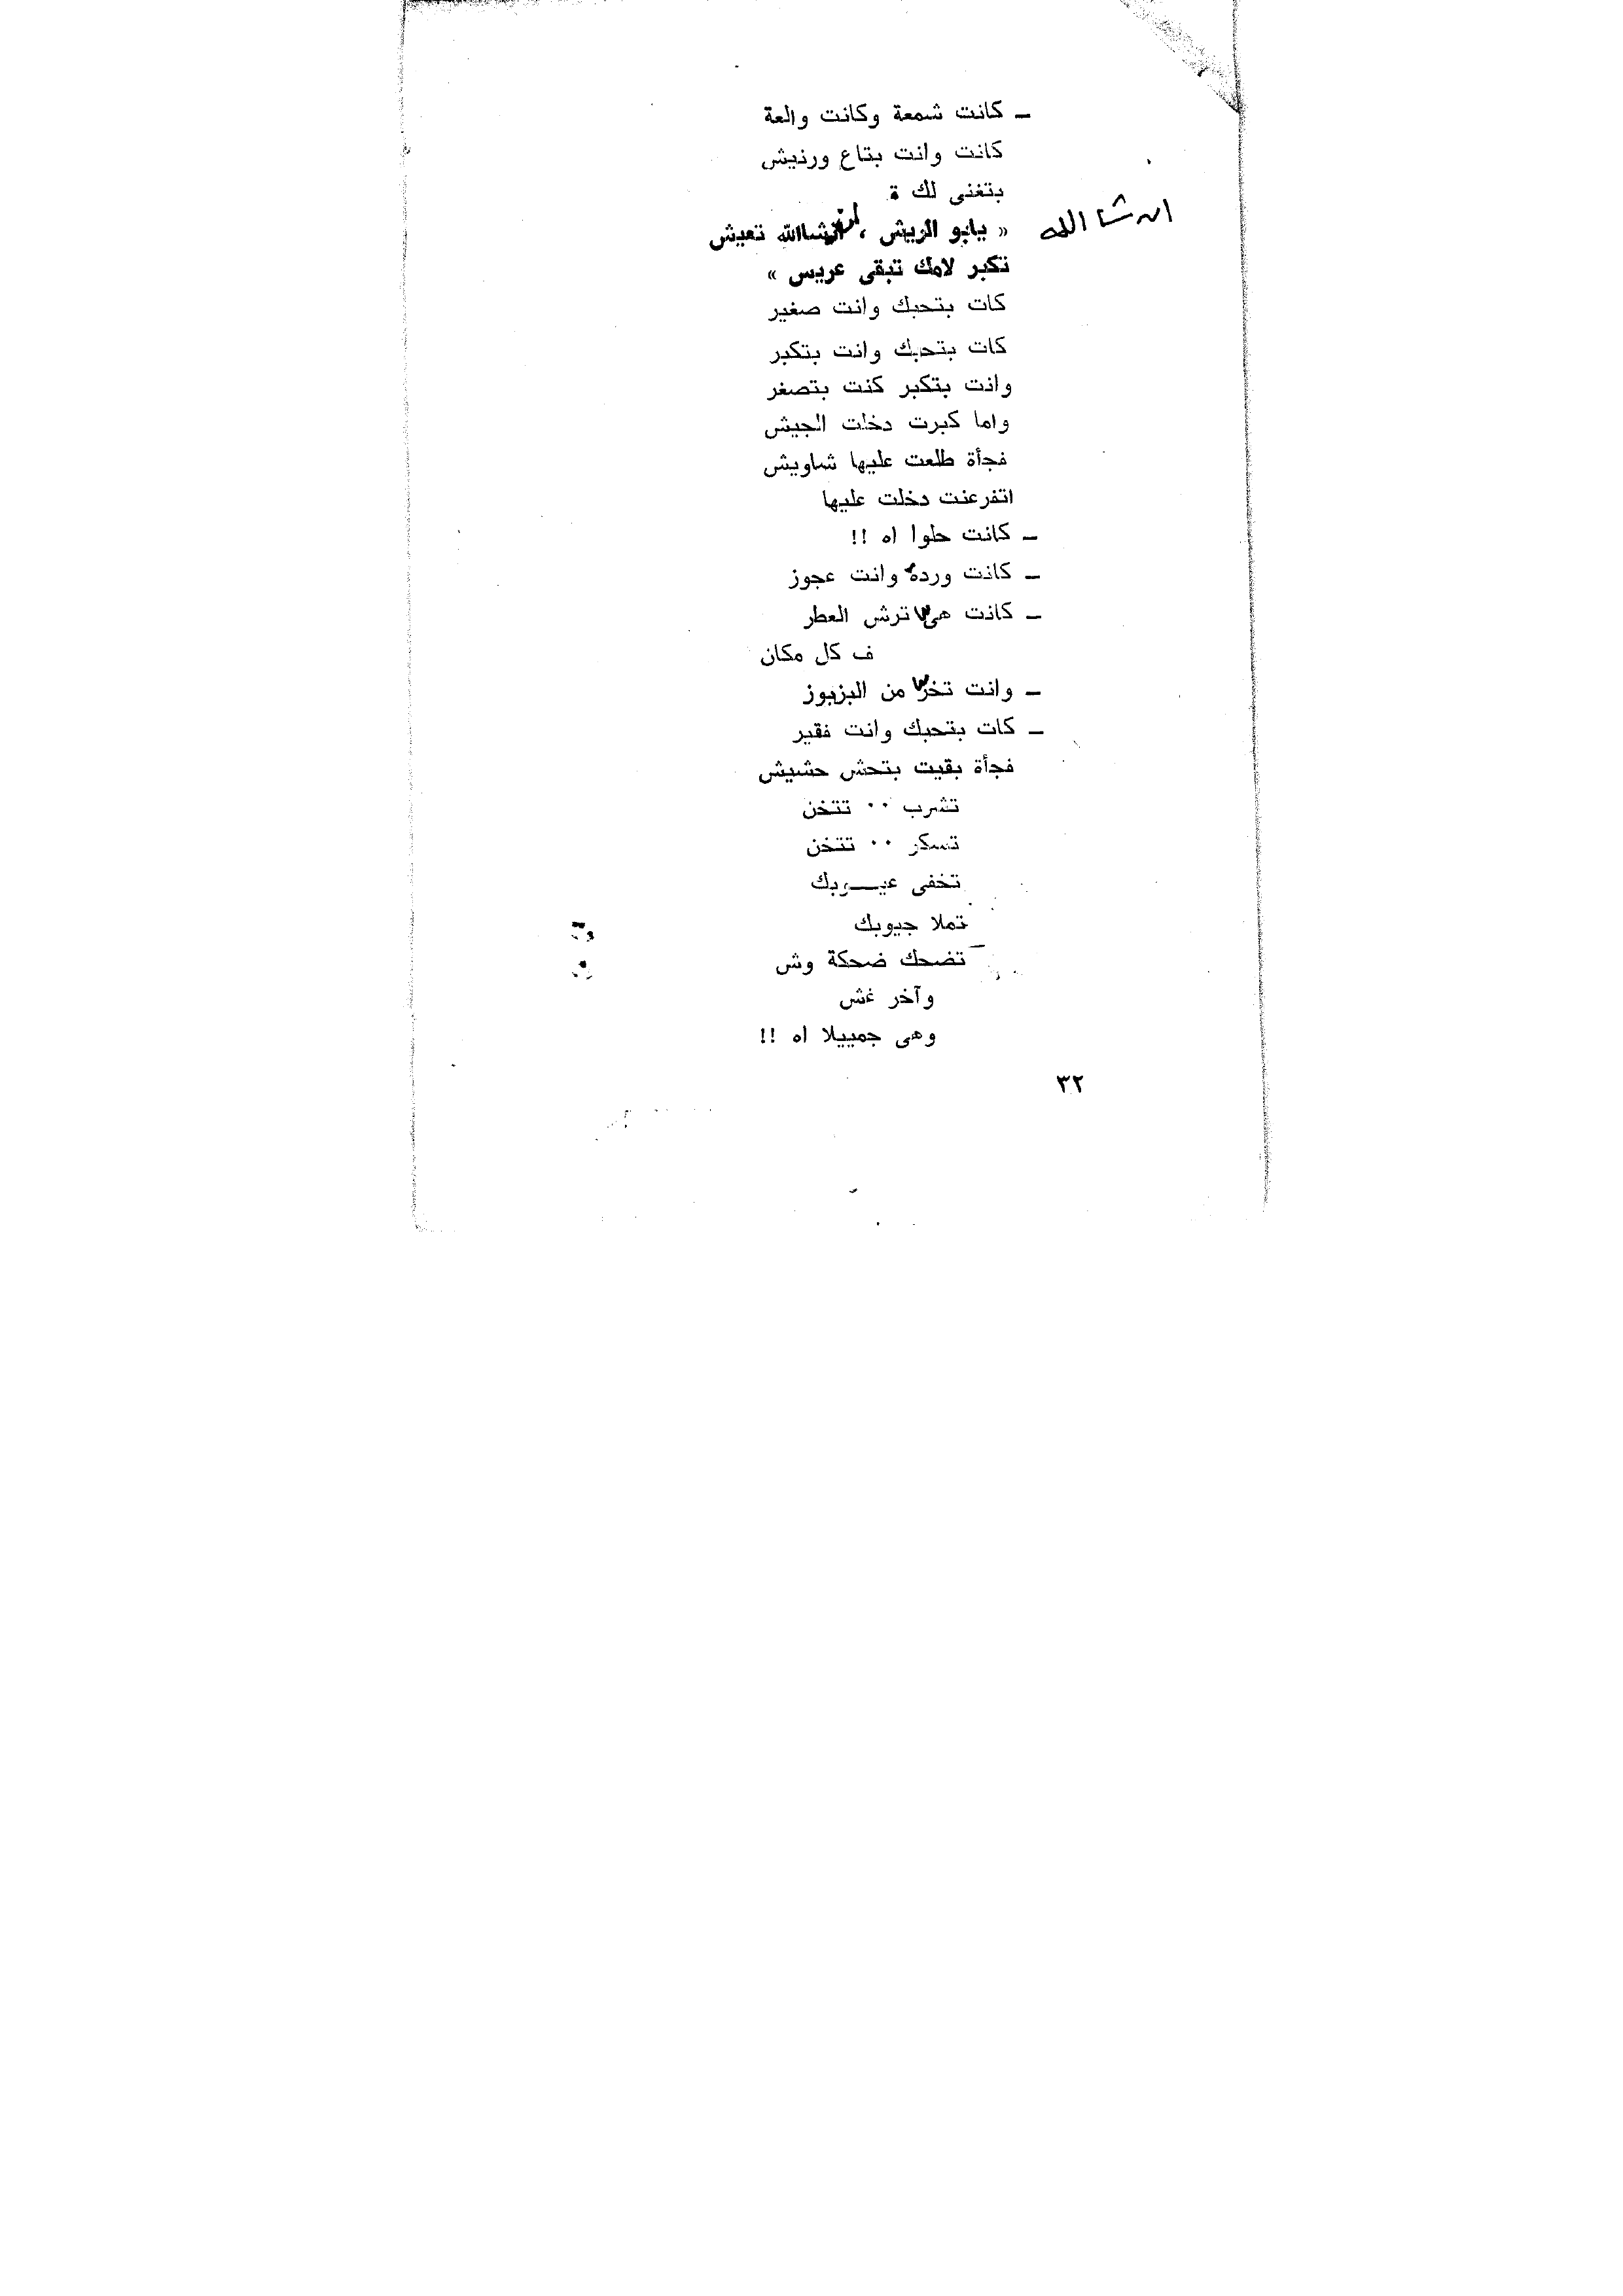 ـ كانت شمعة وكانت والعة
كانت وانت بتاع ورنيش
بتغنى لك :
« يابو الريش ، انشاالله تعيش
ان شا الله
تكبر لامك تبقى عريس »
كات بتحبك وانت صغير
كات بتحبك وانت بتكبر
وانت بتكبر كنت بتصغر
واما كبرت دخلت الجيش
فجأة طلعت عليها شاويش
اتفرعنت دخلت عليها
ـ كانت حلوا اه !!
ـ كانت ورده وانت عجوز
ـ كانت هى ترش العطر
ف كل مكان
ـ وانت تخر من البزبوز
ـ كات بتحبك وانت فقير
فجأة بقيت بتحش حشيش
تشرب ٠٠ تتخن
تسكر ٠٠ تتخن
تخفى عيـــوبك
تملا جيوبك
تضحك ضحكة وش
وآخر غش
وهى جمييلا اه !!
٣٢